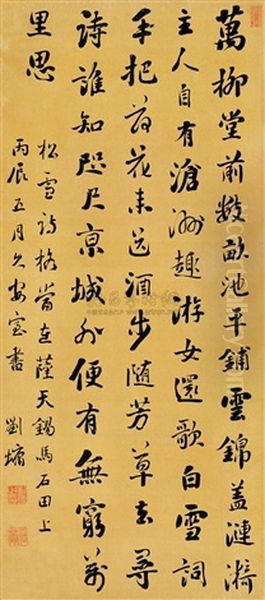 萬柳堂前數畝池平鋪雲錦蓋漣漪
主人自有滄洲趣游女還歌白雪詞
手把荷花来送酒步隨芳草去尋
詩誰知咫尺京城外便有無窮萬
里思
松雪詩格當在薩天錫馬石田上
丙辰五月久安室書 劉墉